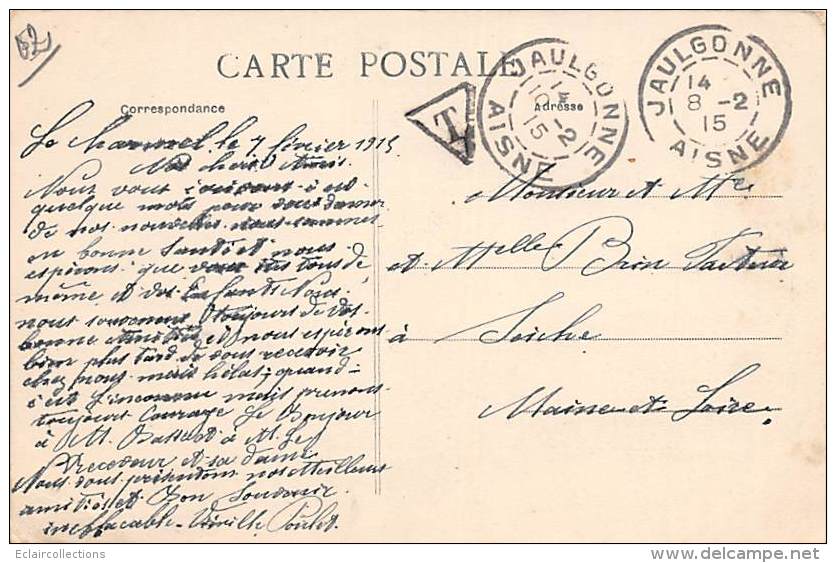 62
CARTE POSTALE
Correspondance
Adresse
T
JAULGONNE
14
10 -2
15
AISNE
JAULGONNE
14
8 -2
15
AISNE
Le Charmel le 7 février 1915
Nos chers Amis.
Nous vous écivons
quelque mots pour vous donner
de nos nouvelles nous sommes
en bonne Santé et nous
espérons que vous êtes tous de
même et vos Enfants Nous
nous souvenons toujours de vos
bonne Amitiés et nous espérons
bien plus tard de vous recevoir
chez nous mais hélas quand
c'est L'inconnu mais prenons
toujours Courage Le Bonjour
à M. à M. Le
Receveur et sa dame
Nous vous présentons nos Meilleurs
amitiés et Bon Souvenir
ineffaçable - Poulet.
Monsieur et Mme
et Melle Brin Facteur
à Seiche
Maine et Loire
Eclaircollections
delcampe.net